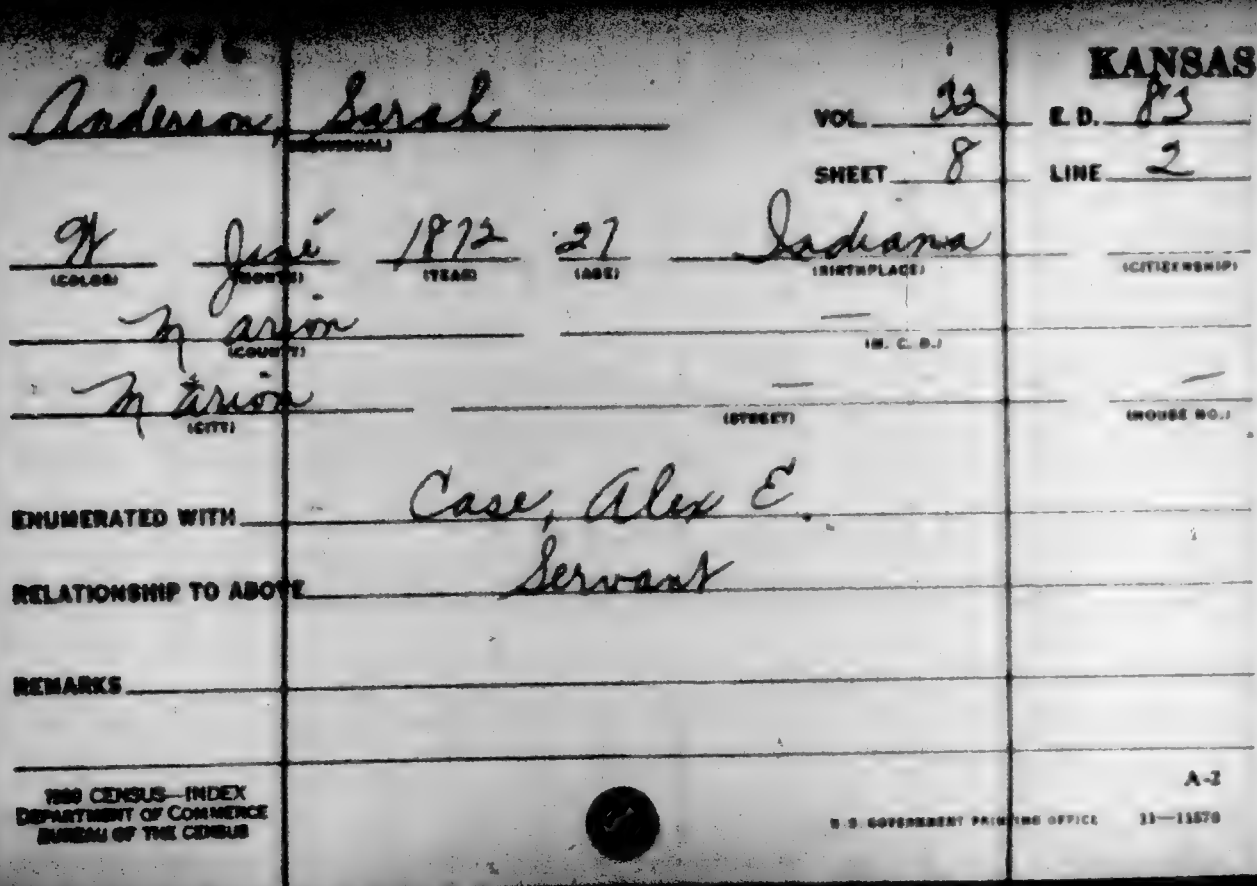 KANSAS
Anderson, Sarah VOL. 32 E. D. 83
(INDIVIDUAL)
SHEET 8 LINE 2
W June 1872 27 Indiana
(COLOR) (MONTH) (YEAR) (AGE) (BIRTHPLACE) (CITIZENSHIP)
Marion —
(COUNTY) (M. C. D.)
Marion — —
(CITY) (STREET) (HOUSE NO.)
ENUMERATED WITH Case, Alex E.
RELATIONSHIP TO ABOVE Servant
REMARKS
1900 CENSUS—INDEX
DEPARTMENT OF COMMERCE
BUREAU OF THE CENSUS
A-2
U. S. GOVERNMENT PRINTING OFFICE 11—11570